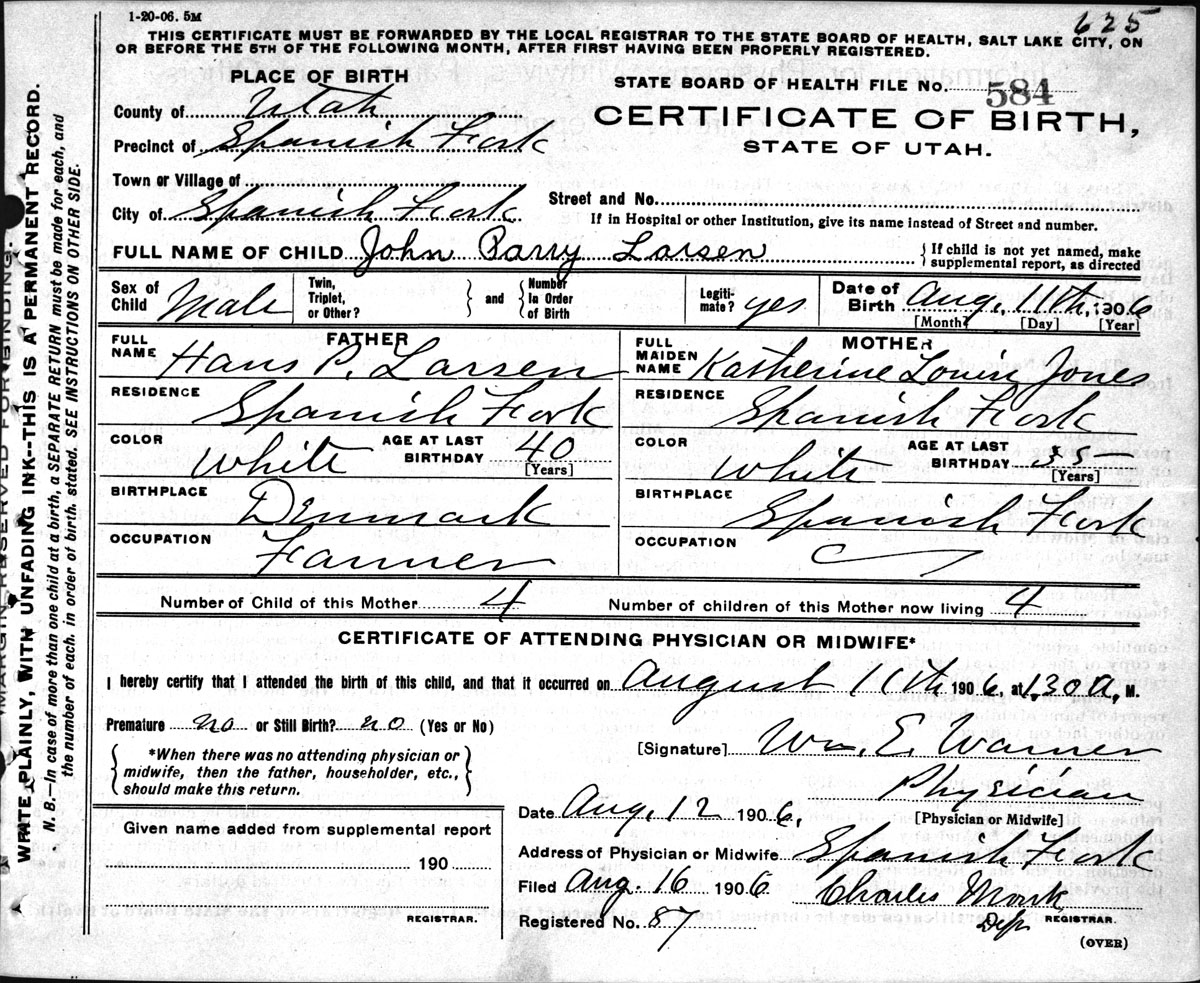 1-20-06. 5M
625
THIS CERTIFICATE MUST BE FORWARDED BY THE LOCAL REGISTRAR TO THE STATE BOARD OF HEALTH, SALT LAKE CITY, ON
OR BEFORE THE 5TH OF THE FOLLOWING MONTH, AFTER FIRST HAVING BEEN PROPERLY REGISTERED.
PLACE OF BIRTH
County of Utah
Precinct of Spanish Fork
Town or Village of
City of Spanish Fork
STATE BOARD OF HEALTH FILE No. 584
CERTIFICATE OF BIRTH,
STATE OF UTAH.
Street and No.
If in Hospital or other Institution, give its name instead of Street and number.
FULL NAME OF CHILD John Parry Larsen
{ If child is not yet named, make
supplemental report, as directed
Sex of Child Male
Twin, Triplet, or Other? } and { Number In Order of Birth
Legiti-mate? yes
Date of Birth Aug. 11th, 1906
[Month] [Day] [Year]
FATHER
FULL NAME Hans P. Larsen
RESIDENCE Spanish Fork
COLOR White AGE AT LAST BIRTHDAY 40
[Years]
BIRTHPLACE Denmark
OCCUPATION Farmer
MOTHER
FULL MAIDEN NAME Katherine Jones
RESIDENCE Spanish Fork
COLOR White AGE AT LAST BIRTHDAY 35
[Years]
BIRTHPLACE Spanish Fork
OCCUPATION
Number of Child of this Mother 4 Number of children of this Mother now living 4
CERTIFICATE OF ATTENDING PHYSICIAN OR MIDWIFE*
I hereby certify that I attended the birth of this child, and that it occurred on August 11th 1906, at 1.30 A, M.
Premature no or Still Birth? no (Yes or No)
{ *When there was no attending physician or
midwife, then the father, householder, etc.,
should make this return. }
[Signature] Wm. E. Warner
Physician
[Physician or Midwife]
Date Aug. 12 1906,
Address of Physician or Midwife Spanish Fork
Filed Aug. 16 1906 Charles Monk
Registered No. 87 Dep REGISTRAR.
(OVER)
Given name added from supplemental report
190
REGISTRAR.
MARGIN RESERVED FOR BINDING.
WRITE PLAINLY, WITH UNFADING INK--THIS IS A PERMANENT RECORD.
N. B.—In case of more than one child at a birth, a SEPARATE RETURN must be made for each, and
the number of each, in order of birth, stated. SEE INSTRUCTIONS ON OTHER SIDE.